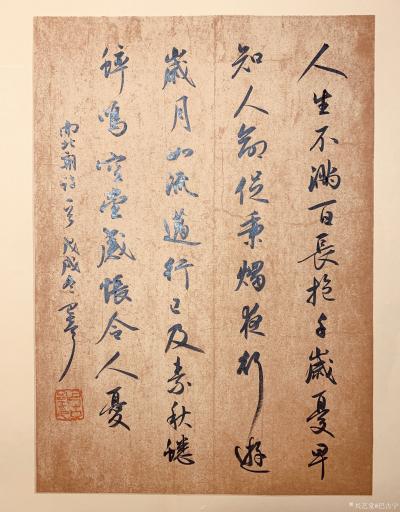 人生不滿百長抱千歲憂早
知人命促秉燭夜行遊
歲月如流邁行已及素秋蟋
蟀鳴空堂感悵令人憂
南北朝詩一首戊戌冬